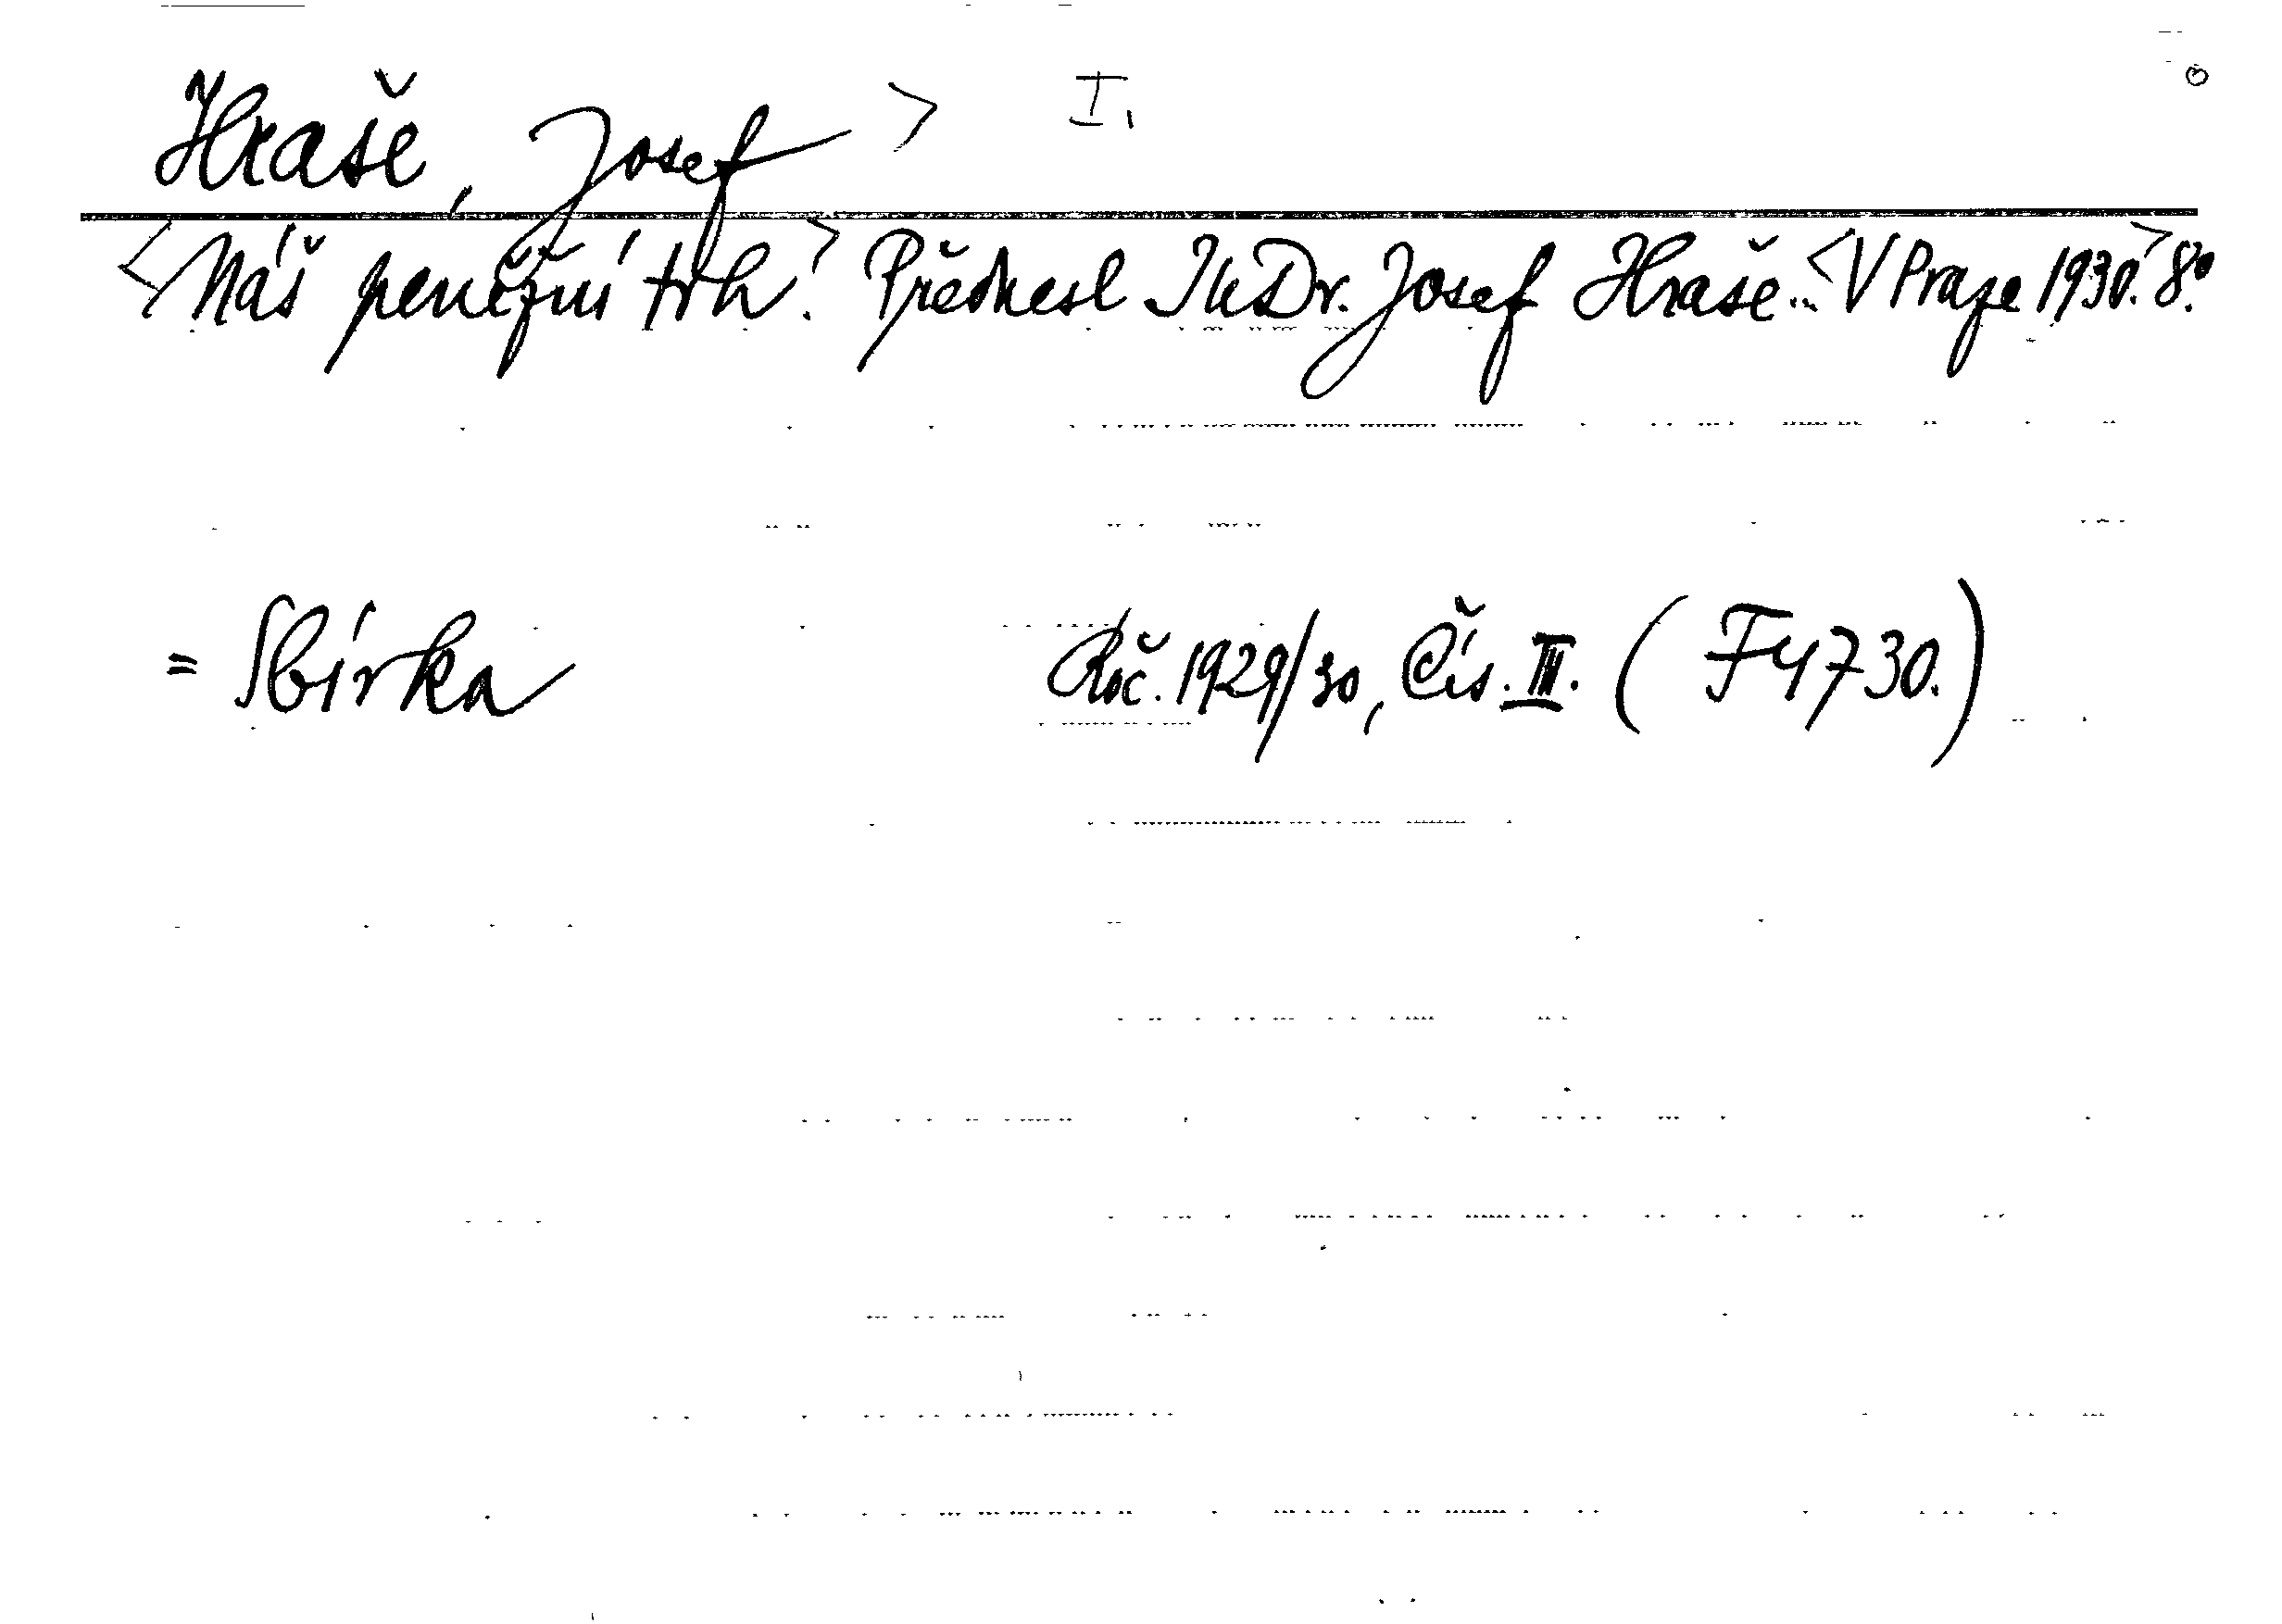 Hraše, Josef > I.
<Náš peněžní trh.> Přednesl JUDr. Josef Hraše...<V Praze 1930.> 8°.
= Sbírka Roč. 1929/30, Čís. III. (F 4730.)